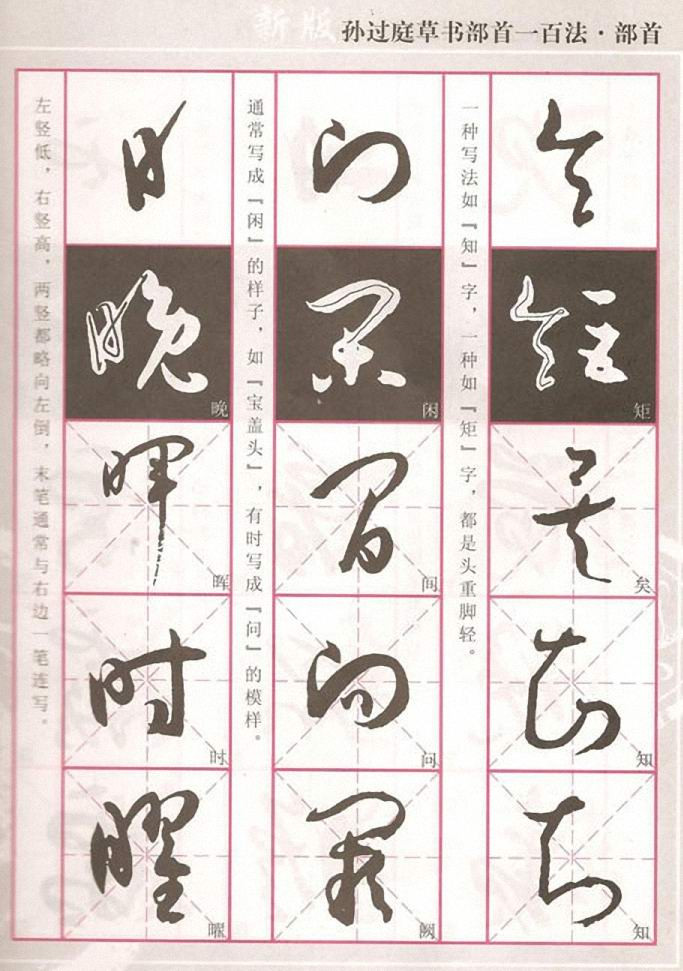 新版
孙过庭草书部首一百法·部首
矩
矣
知
知
一种写法如『知』字，一种如『矩』字，都是头重脚轻。
闲
间
问
阙
通常写成『闲』的样子，如『宝盖头』，有时写成『问』的模样。
晚
晖
时
曜
左竖低，右竖高，两竖都略向左倒，末笔通常与右边一笔连写。